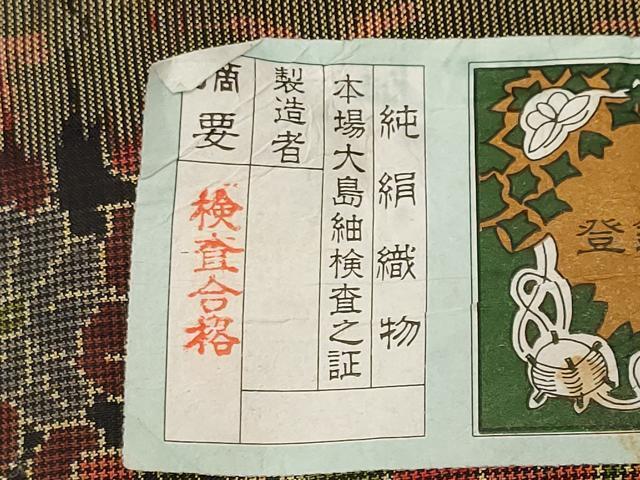 純絹織物
本場大島紬検査之証
製造者
摘要
検査合格
登